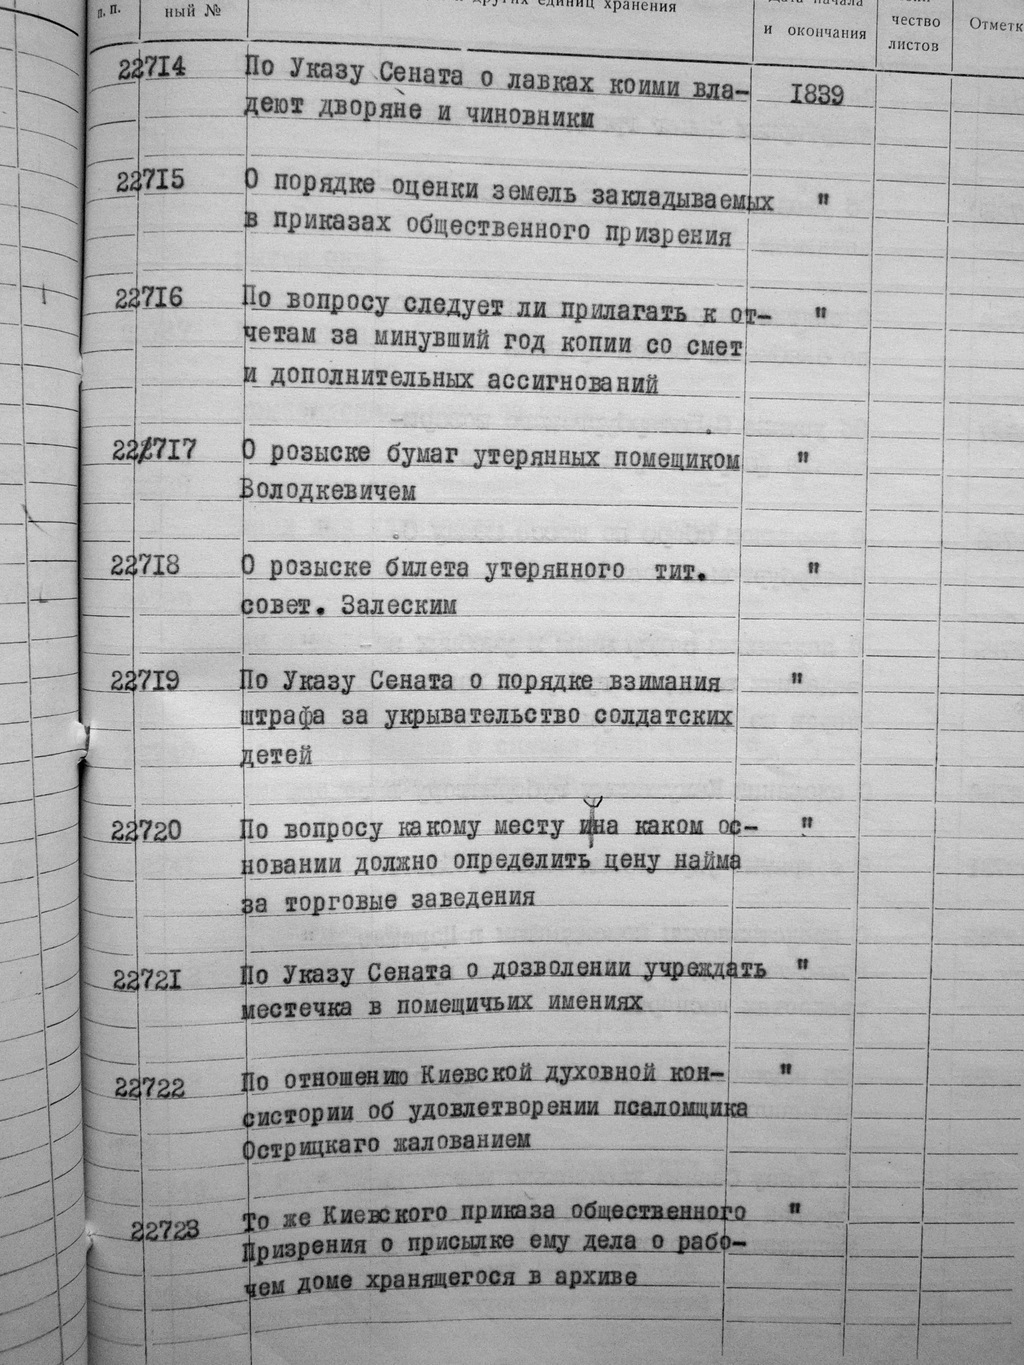 п. п.
ный №
других единиц хранения
Дата начала
и окончания
чество
листов
Отметк
22714 По Указу Сената о лавках коими вла-
деют дворяне и чиновники 1839
22715 О порядке оценки земель закладываемых "
в приказах общественного призрения
22716 По вопросу следует ли прилагать к от- "
четам за минувший год копии со смет
и дополнительных ассигнований
22717 О розыске бумаг утерянных помещиком "
Володкевичем
22718 О розыске билета утерянного тит. "
совет. Залеским
22719 По Указу Сената о порядке взимания "
штрафа за укрывательство солдатских
детей
22720 По вопросу какому месту и на каком ос- "
новании должно определить цену найма
за торговые заведения
22721 По Указу Сената о дозволении учреждать "
местечка в помещичьих имениях
22722 По отношению Киевской духовной кон- "
систории об удовлетворении псаломщика
Острицкаго жалованием
22723 То же Киевского приказа общественного "
Призрения о присылке ему дела о рабо-
чем доме хранящегося в архиве